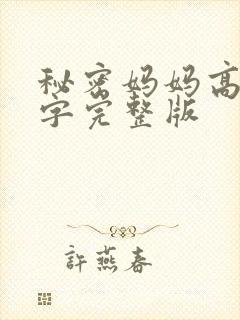 秘密妈妈高
字完整版
許燕春